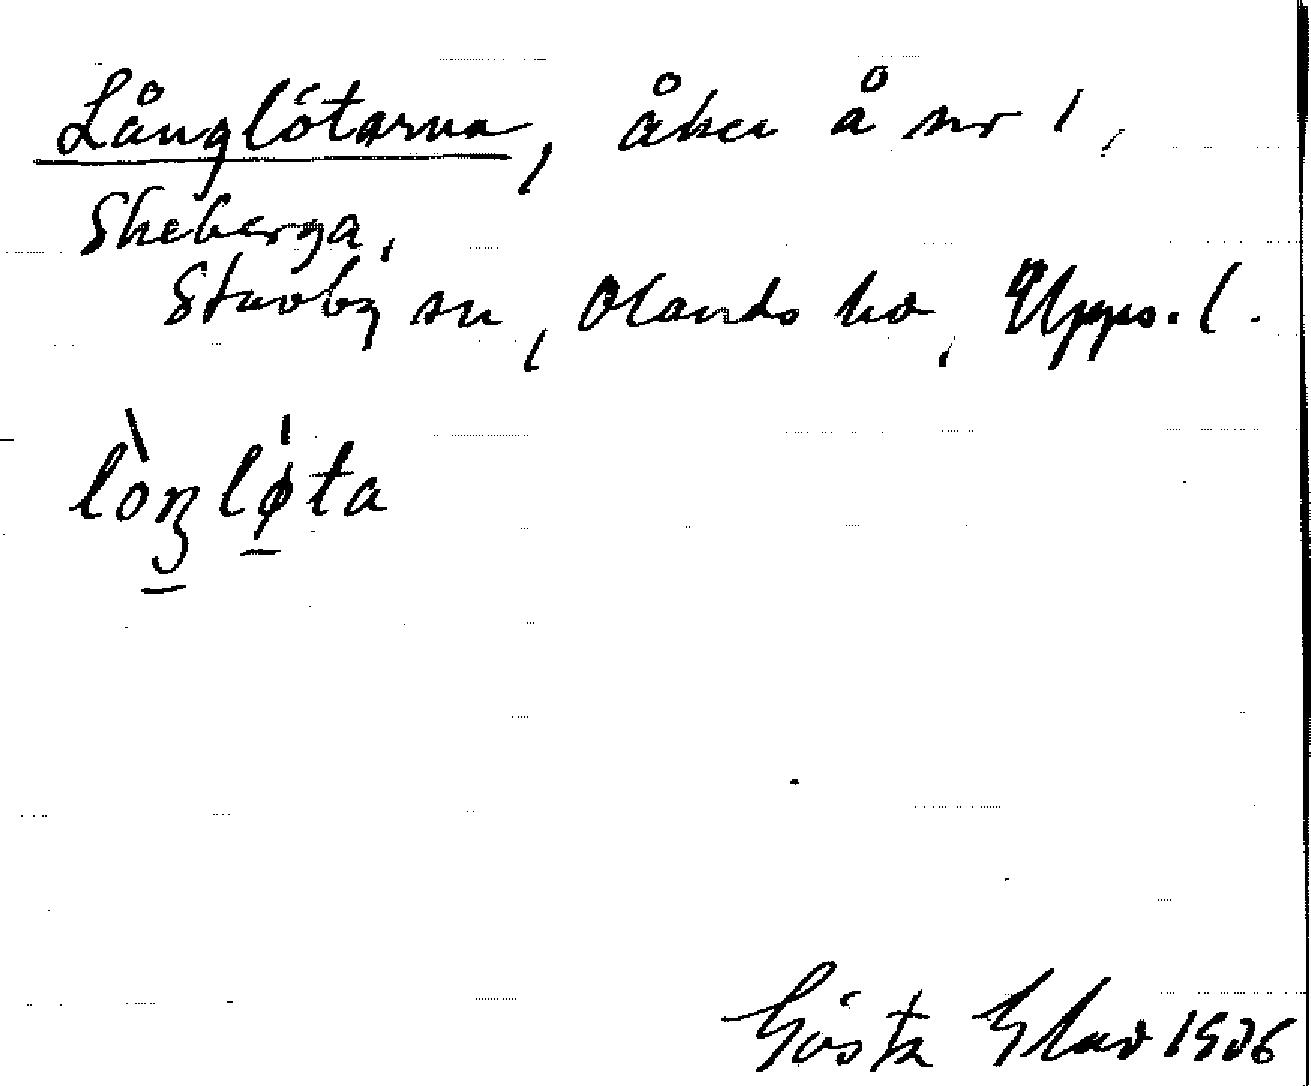 Långlötarna, åker å nr 1,
Skeberga,
Stavby sn, Olands hd, Upps. l.
lòŋløta
Gösta Elav 1936